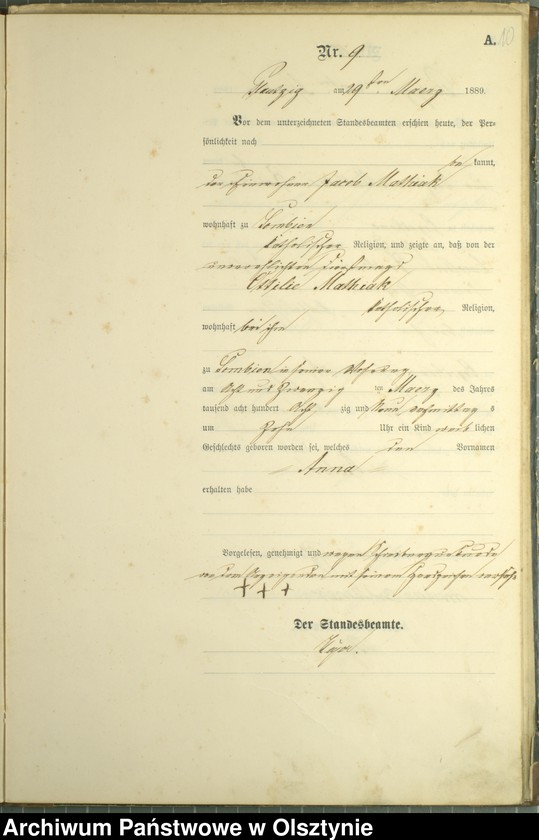 A. 10
Nr. 9
am 29ten Maerz 1889.
Vor dem unterzeichneten Standesbeamten erschien heute, der Per-
sönlichkeit nach
be kannt,
Jacob Mathiak
wohnhaft zu
katholischer Religion, und zeigte an, daß von der
unverehelichten
Ottilie Mathiak
katholischer Religion,
wohnhaft bei ihm
zu in seiner Wohnung
am Acht und Zwanzig ten Maerz des Jahres
tausend acht hundert Acht zig und Neun Vormittag s
um Zehn Uhr ein Kind weib lichen
Geschlechts geboren worden sei, welches den Vornamen
Anna
erhalten habe
Vorgelesen, genehmigt und wegen
von dem Anzeigenden mit seinem Handzeichen versehen
+ + +
Der Standesbeamte.
Archiwum Państwowe w Olsztynie